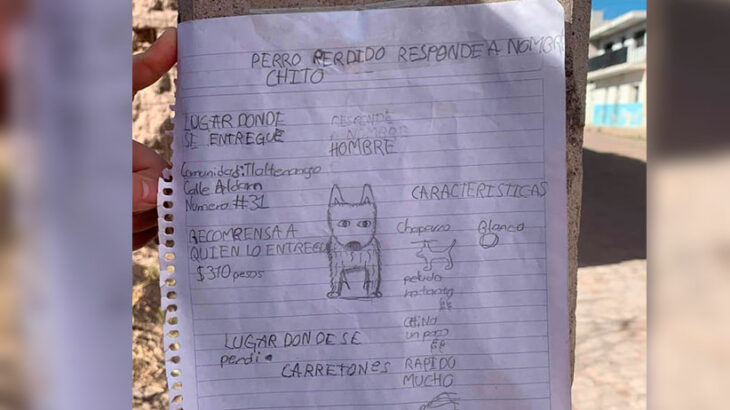 PERRO PERDIDO RESPONDE A NOMBRE
CHITO
LUGAR DONDE
SE ENTREGUE
HOMBRE
Comunidad: Tlaltenango
Calle Aldam
Numero #31
RECOMRENSA A
QUIEN LO ENTREGUE
$370 pesos
CARACTERISTICAS
Chaparro Blanco
peludo
CHINO
un poco
RAPIDO
MUCHO
LUGAR DONDE SE
perdio
CARRETONES